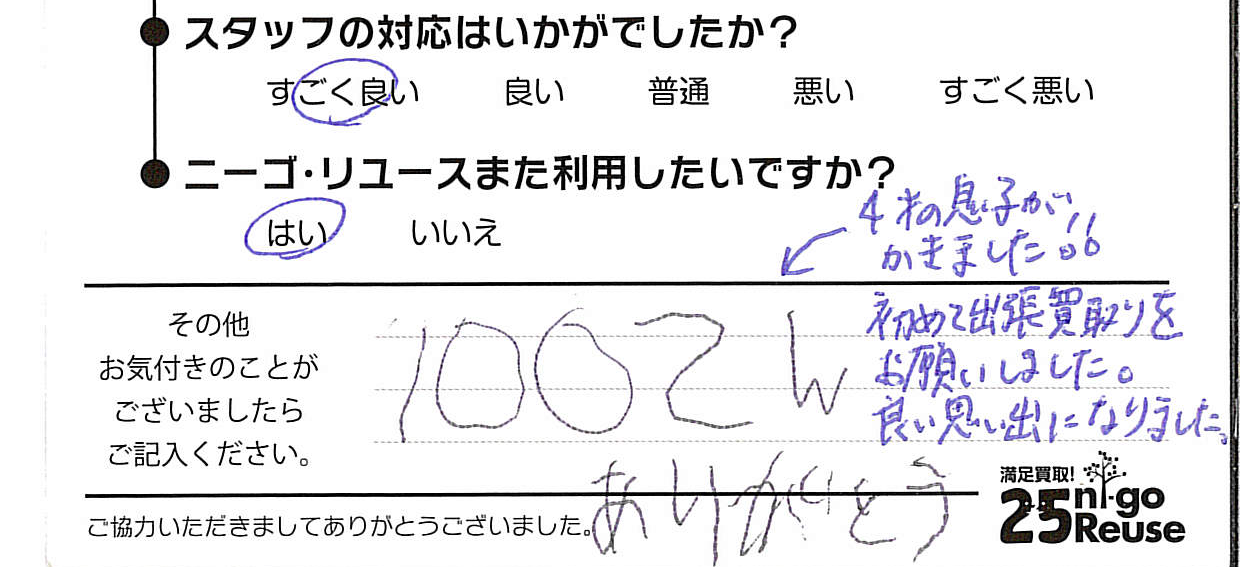 スタッフの対応はいかがでしたか?
すごく良い 良い 普通 悪い すごく悪い
ニーゴ・リユースまた利用したいですか?
はい いいえ
4才の息子が
かきました!!
その他
お気付きのことが
ございましたら
ご記入ください。
初めて出張買取りを
お願いしました。
良い思い出になりました。
ありがとう
ご協力いただきましてありがとうございました。
満足買取!
25 ni-go
Reuse